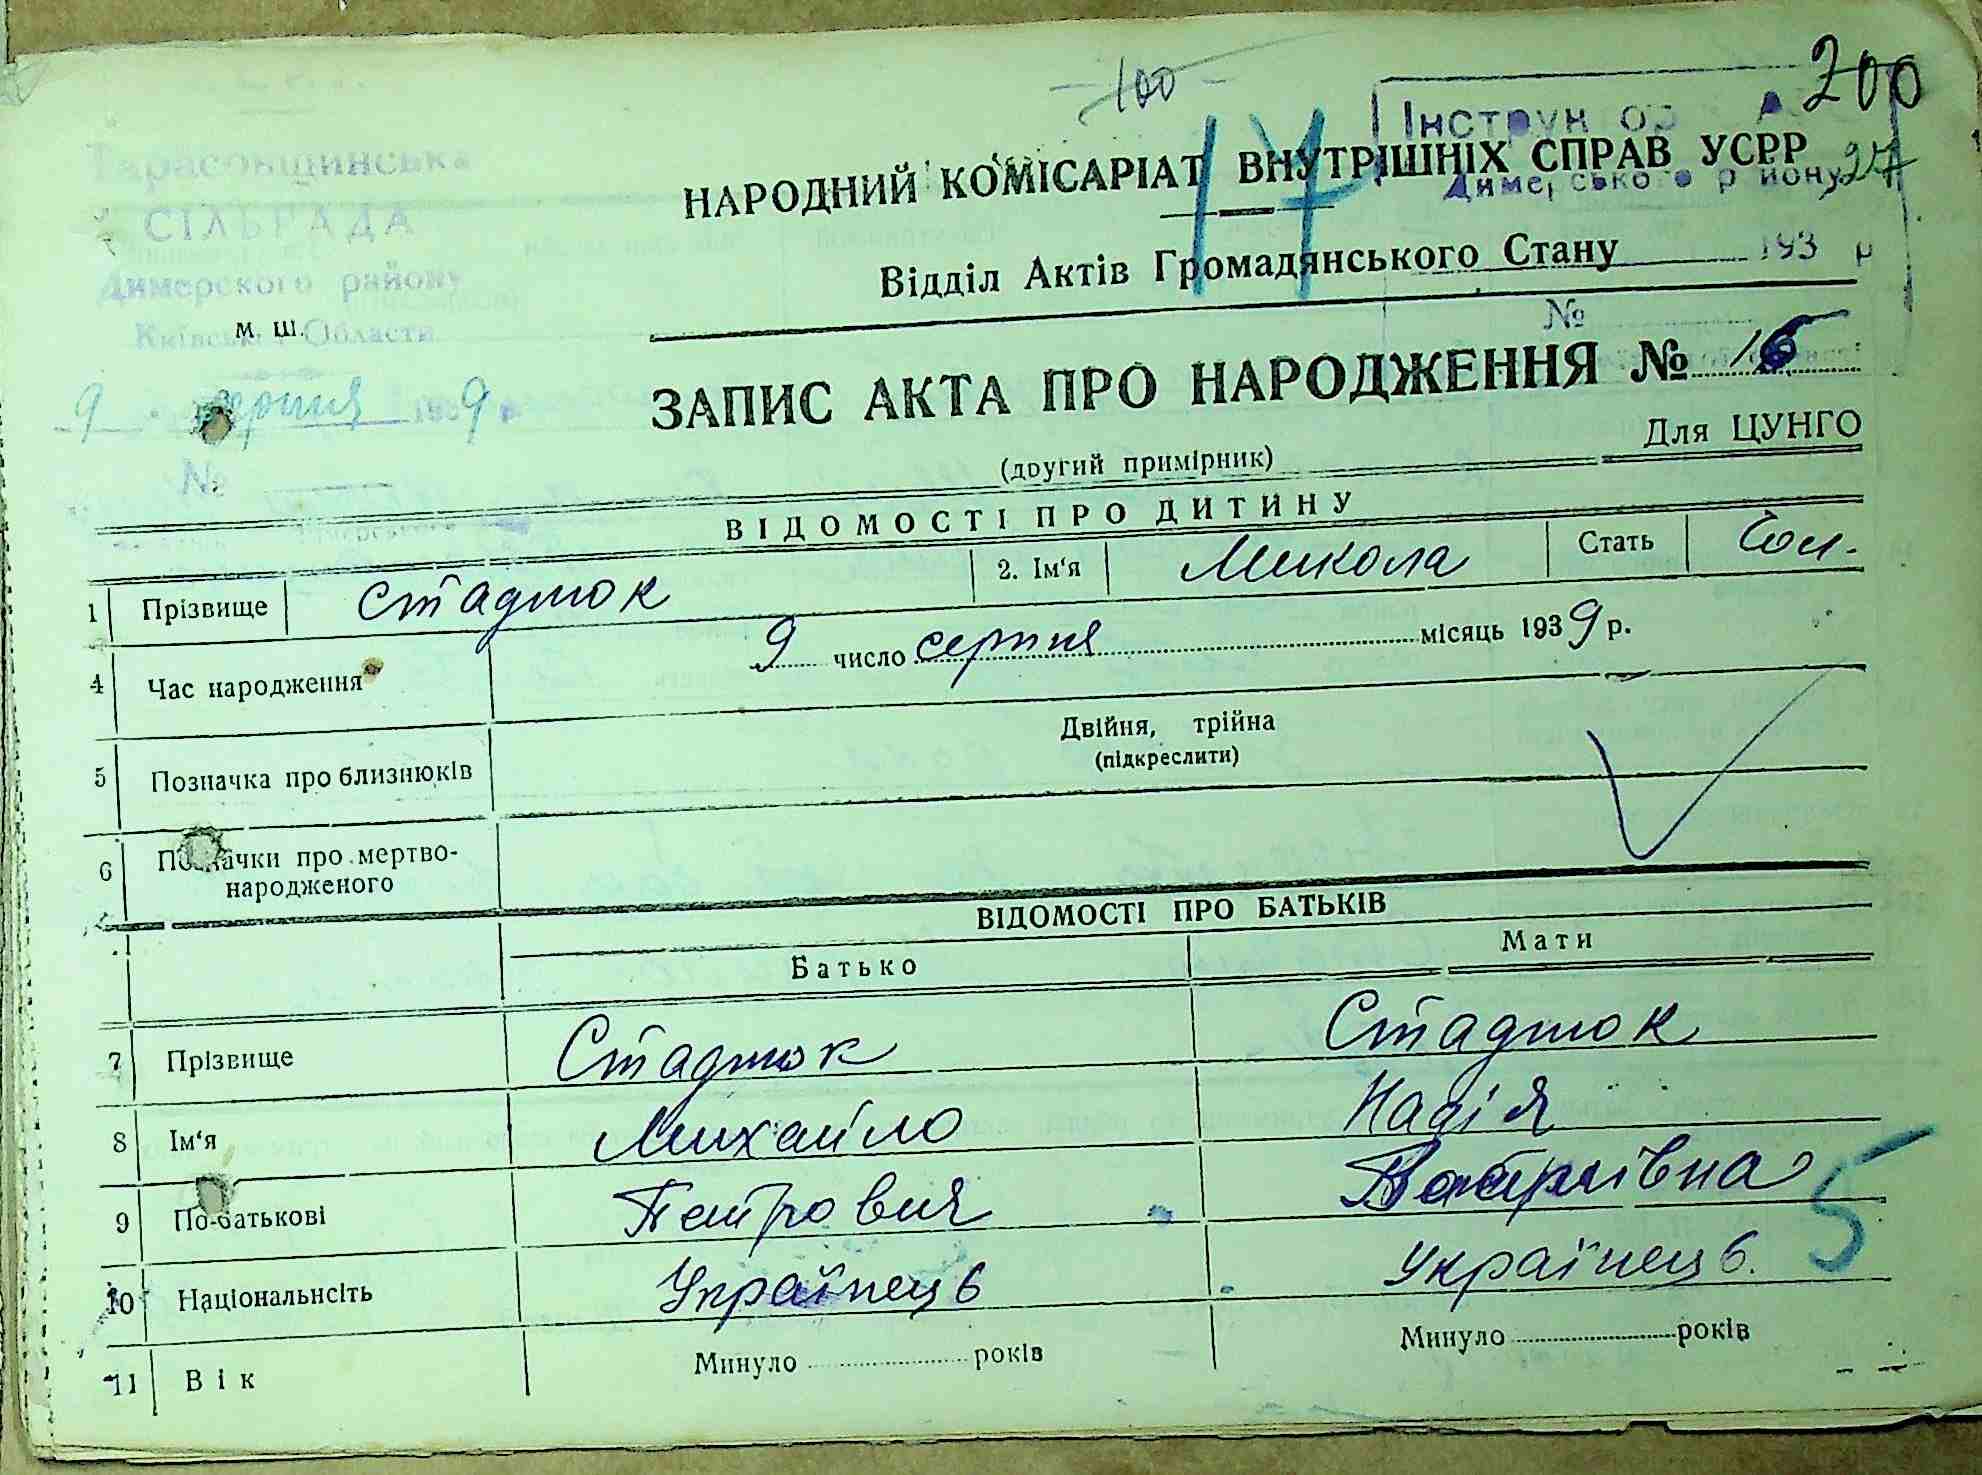 100
200
27
17
Інструк ор А
Димерського р йону
193 р
№
Тарасовщинська
СІЛЬРАДА
Димерского району
Київської Області
м. ш.
9 серпня 1939 р
№
НАРОДНИЙ КОМІСАРІАТ ВНУТРІШНІХ СПРАВ УСРР
Відділ Актів Громадянського Стану
ЗАПИС АКТА ПРО НАРОДЖЕННЯ № 16
Для ЦУНГО
(другий примірник)
ВІДОМОСТІ ПРО ДИТИНУ
1 Прізвище Стадток 2. Ім'я Микола Стать Чол.
4 Час народження 9 число серпня місяць 1939 р.
5 Позначка про близнюків Двійня, трійна
(підкреслити)
6 Позначки про мертво-
народженого
ВІДОМОСТІ ПРО БАТЬКІВ
Батько Мати
7 Прізвище Стадток Стадток
8 Ім'я Михайло Надія
9 По-батькові Петрович
10 Національнсіть Українець Українець.
5
11 Вік Минуло років Минуло років